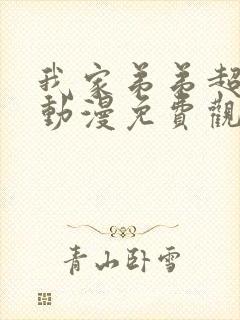 我家弟弟超
動漫免費觀
青山卧雪